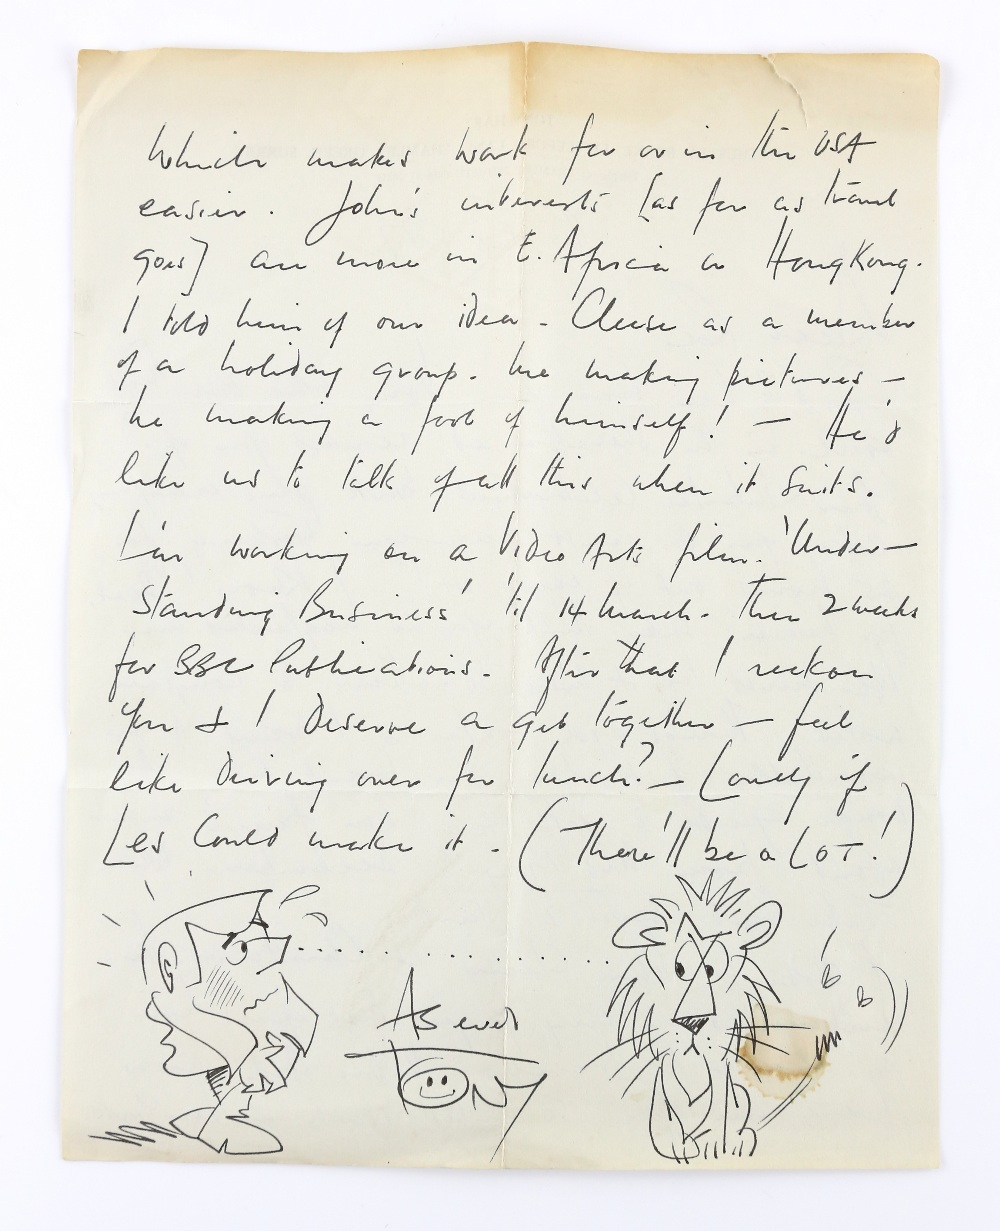 which makes work for or in the USA
easier. John's interests [as far as travel
goes] are more in E. Africa or HongKong.
I told him of our idea - Cleese as a member
of a holiday group. We making pictures -
he making a fool of himself! - He'd
like us to talk of all this when it suits.
I'm working on a Video Arts film. 'Under-
Standing Business' 'til 14 March. Then 2 weeks
for BBC Publications. After that I reckon
You & I Deserve a get together - feel
like Driving over for lunch? - Lovely if
Les Could make it. (There'll be a LOT!)
As ever
TONY